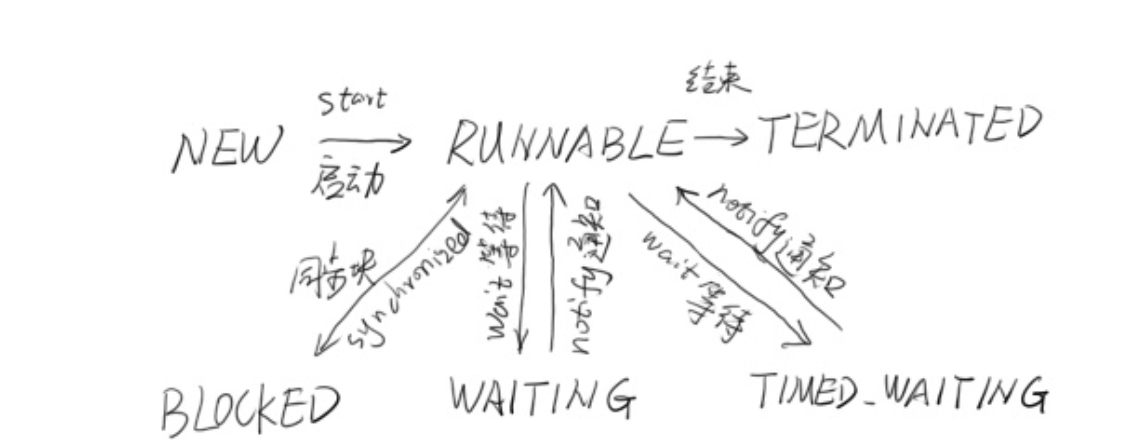 start
结束
NEW
RUNNABLE
TERMINATED
启动
同步块
synchronized
wait 等待
notify 通知
wait 等待
notify 通知
BLOCKED
WAITING
TIMED_WAITING